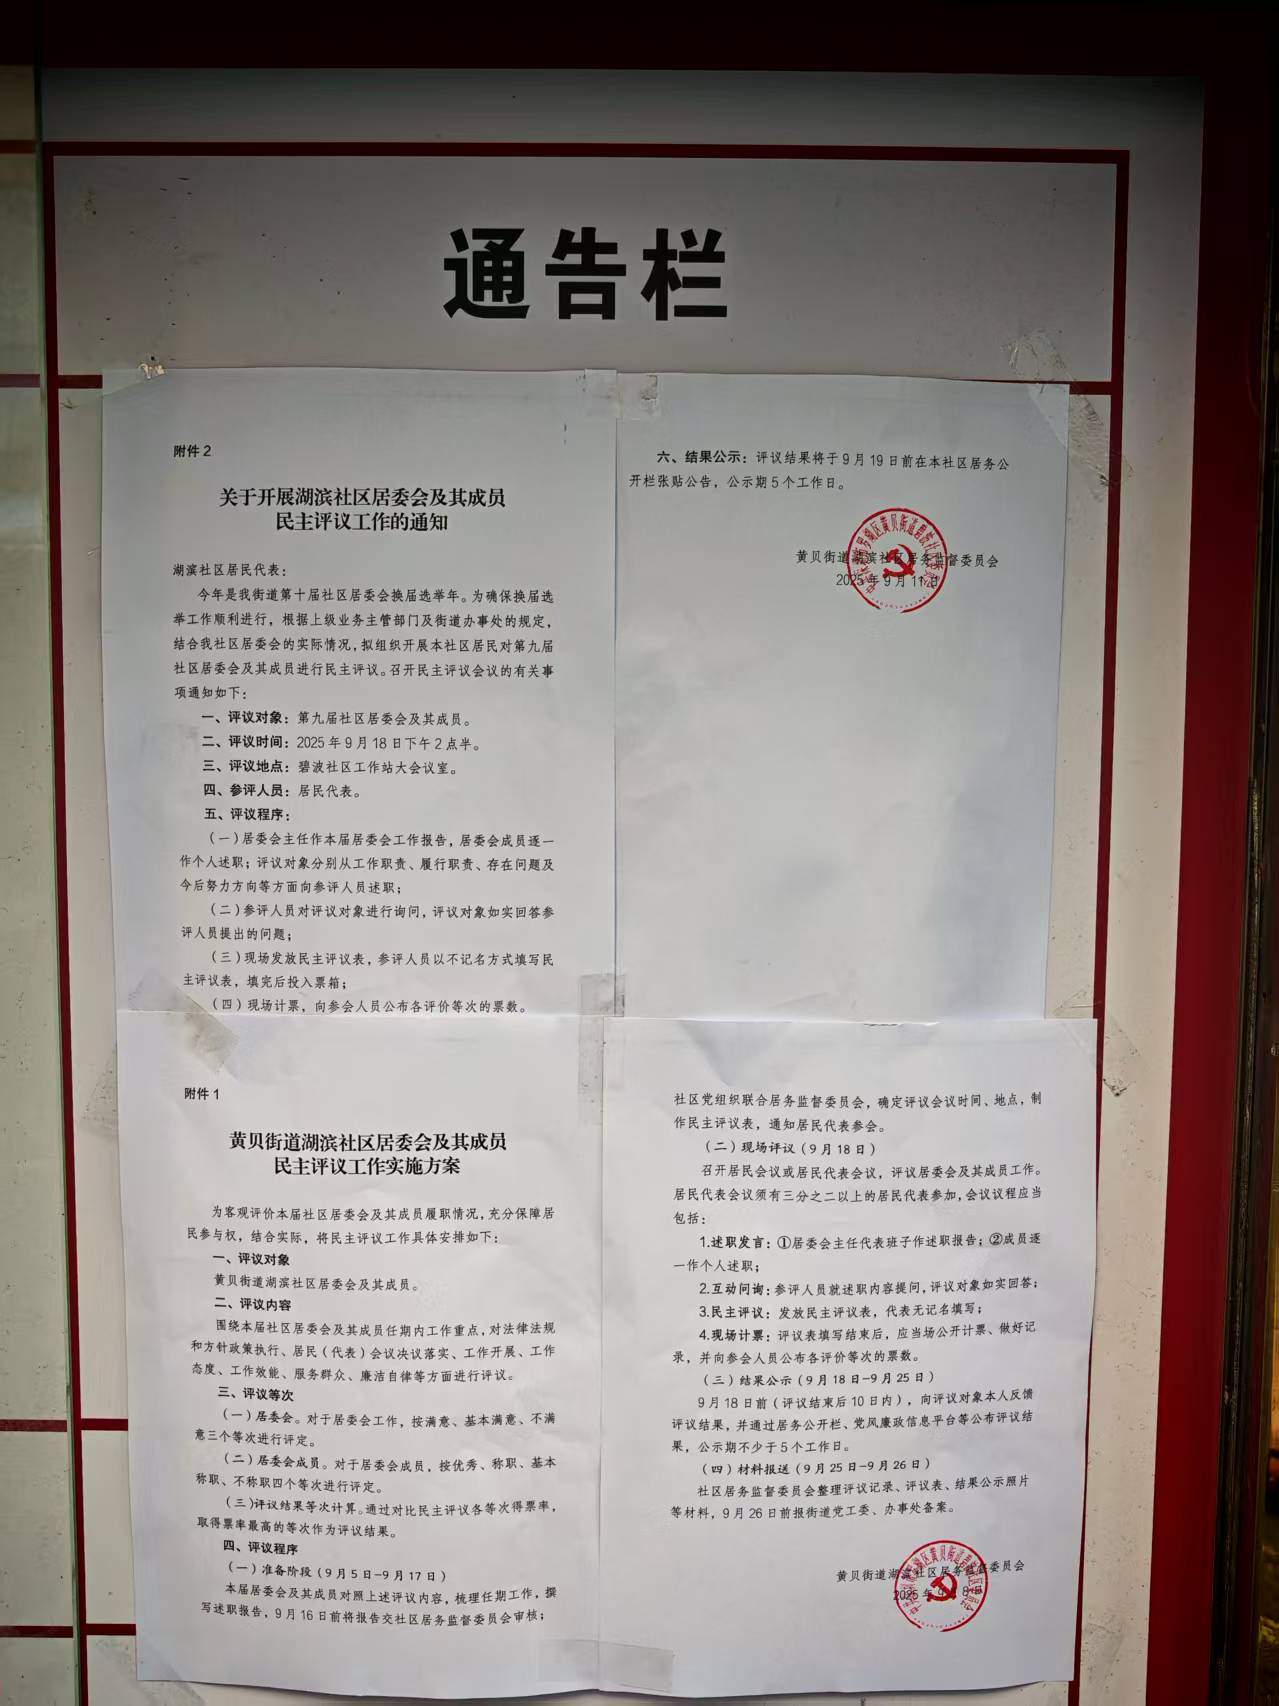 通告栏
附件2
关于开展湖滨社区居委会及其成员
民主评议工作的通知
湖滨社区居民代表：
今年是我街道第十届社区居委会换届选举年。为确保换届选
举工作顺利进行，根据上级业务主管部门及街道办事处的规定，
结合我社区居委会的实际情况，拟组织开展本社区居民对第九届
社区居委会及其成员进行民主评议。召开民主评议会议的有关事
项通知如下：
一、评议对象：第九届社区居委会及其成员。
二、评议时间：2025年9月18日下午2点半。
三、评议地点：碧波社区工作站大会议室。
四、参评人员：居民代表。
五、评议程序：
（一）居委会主任作本届居委会工作报告，居委会成员逐一
作个人述职；评议对象分别从工作职责、履行职责、存在问题及
今后努力方向等方面向参评人员述职；
（二）参评人员对评议对象进行询问，评议对象如实回答参
评人员提出的问题；
（三）现场发放民主评议表，参评人员以不记名方式填写民
主评议表，填完后投入票箱；
（四）现场计票，向参会人员公布各评价等次的票数。
六、结果公示：评议结果将于9月19日前在本社区居务公
开栏张贴公告，公示期5个工作日。
黄贝街道湖滨社区居务监督委员会
2025年9月11日
附件1
黄贝街道湖滨社区居委会及其成员
民主评议工作实施方案
为客观评价本届社区居委会及其成员履职情况，充分保障居
民参与权，结合实际，将民主评议工作具体安排如下：
一、评议对象
黄贝街道湖滨社区居委会及其成员。
二、评议内容
围绕本届社区居委会及其成员任期内工作重点，对法律法规
和方针政策执行、居民（代表）会议决议落实、工作开展、工作
态度、工作效能、服务群众、廉洁自律等方面进行评议。
三、评议等次
（一）居委会。对于居委会工作，按满意、基本满意、不满
意三个等次进行评定。
（二）居委会成员。对于居委会成员，按优秀、称职、基本
称职、不称职四个等次进行评定。
（三）评议结果等次计算。通过对比民主评议各等次得票率，
取得票率最高的等次作为评议结果。
四、评议程序
（一）准备阶段（9月5日-9月17日）
本届居委会及其成员对照上述评议内容，梳理任期工作，撰
写述职报告，9月16日前将报告交社区居务监督委员会审核；
社区党组织联合居务监督委员会，确定评议会议时间、地点，制
作民主评议表，通知居民代表参会。
（二）现场评议（9月18日）
召开居民会议或居民代表会议，评议居委会及其成员工作。
居民代表会议须有三分之二以上的居民代表参加，会议议程应当
包括：
1.述职发言：①居委会主任代表班子作述职报告；②成员逐
一作个人述职；
2.互动问询：参评人员就述职内容提问，评议对象如实回答；
3.民主评议：发放民主评议表，代表无记名填写；
4.现场计票：评议表填写结束后，应当场公开计票、做好记
录，并向参会人员公布各评价等次的票数。
（三）结果公示（9月18日-9月25日）
9月18日前（评议结束后10日内），向评议对象本人反馈
评议结果，并通过居务公开栏、党风廉政信息平台等公布评议结
果，公示期不少于5个工作日。
（四）材料报送（9月25日-9月26日）
社区居务监督委员会整理评议记录、评议表、结果公示照片
等材料，9月26日前报街道党工委、办事处备案。
黄贝街道湖滨社区居务监督委员会
2025年9月8日